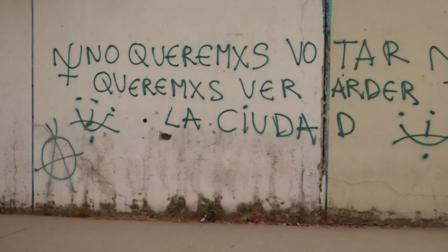 NO QUEREMXS VOTAR N
QUEREMXS VER ARDER
LA CIUDAD